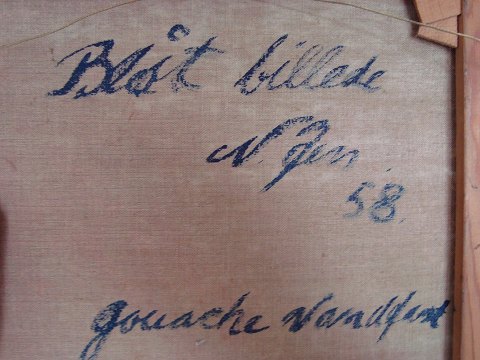 Blåt billede
N. Jen.
58.
gouache Vandfarv